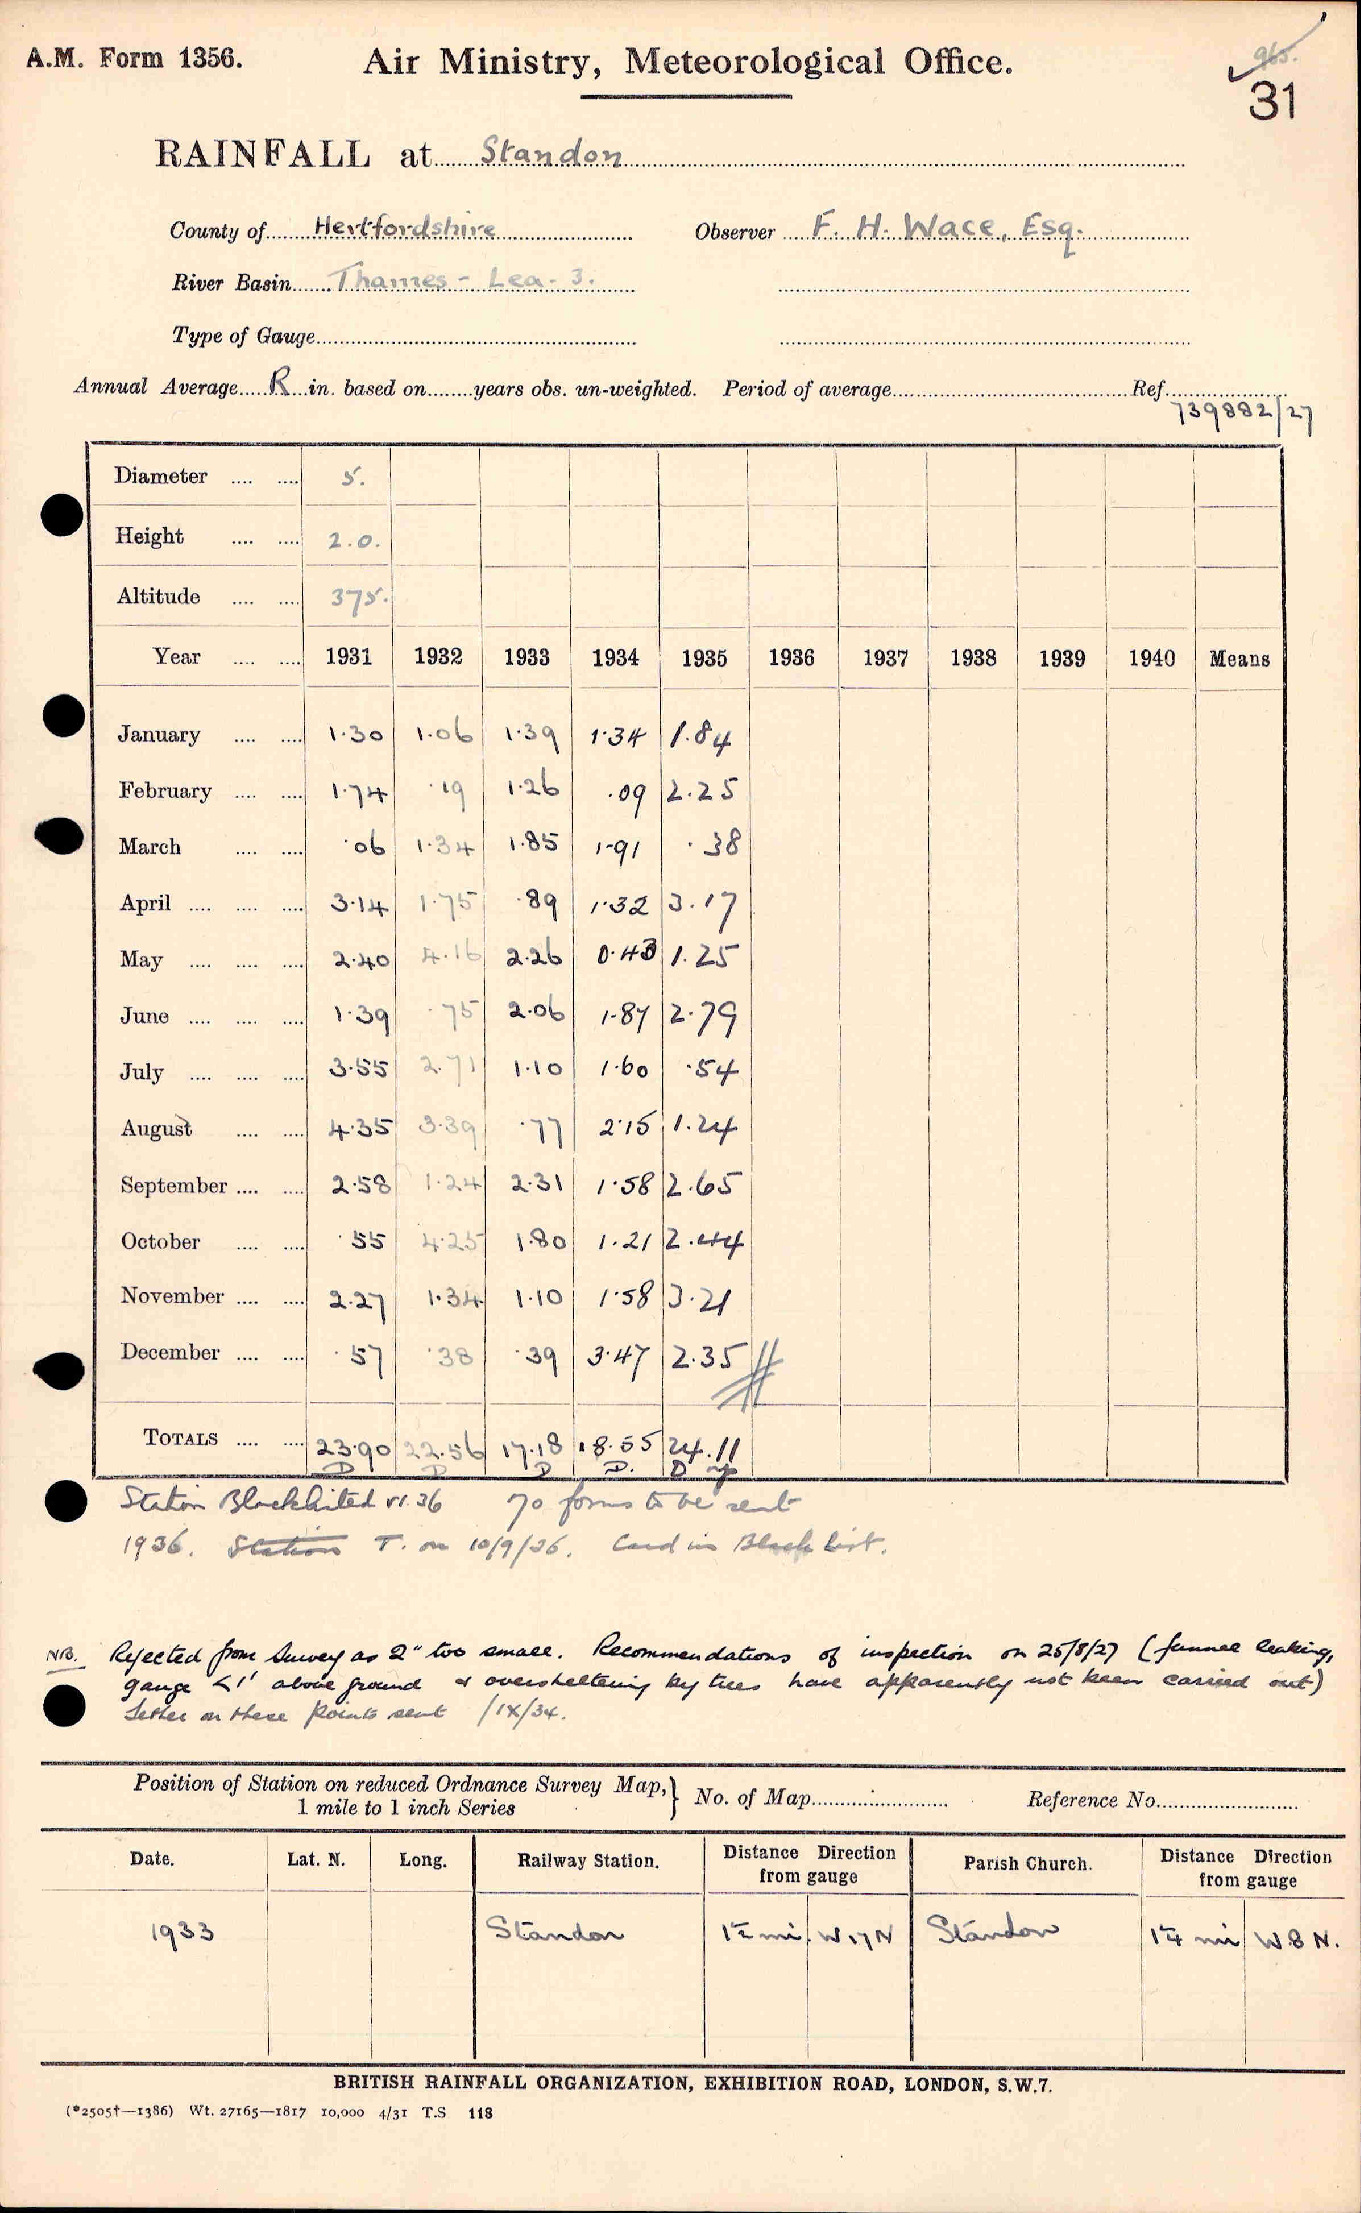 A.M. Form 1356.
Air Ministry, Meteorological Office.
965.
31
RAINFALL at Standon
County of Hertfordshire Observer F. H. Wace, Esq.
River Basin Thames - Lea - 3.
Type of Gauge
Annual Average R in. based on years obs. un-weighted. Period of average Ref.
739882/27
Diameter 5.
Height 2.0.
Altitude 375.
Year 1931 1932 1933 1934 1935 1936 1937 1938 1939 1940 Means
January 1.30 1.06 1.39 1.34 1.84
February 1.74 .19 1.26 .09 2.25
March .06 1.34 1.85 1.91 .38
April 3.14 1.75 .89 1.32 3.17
May 2.40 4.16 2.26 0.43 1.25
June 1.39 .75 2.06 1.87 2.79
July 3.55 2.71 1.10 1.60 .54
August 4.35 3.39 .77 2.15 1.24
September 2.58 1.24 2.31 1.58 2.65
October .55 4.25 1.80 1.21 2.44
November 2.27 1.34 1.10 1.58 3.21
December .57 .38 .39 3.47 2.35
TOTALS 23.90 22.56 17.18 18.55 24.11
D D D D. D
Station Blacklisted VI.36 No forms to be sent
1936. Station T. on 10/9/36. Card in Black list.
NB. Rejected from Survey as 2" too small. Recommendations of inspection on 25/8/27 (funnel leaking,
gauge <1' above ground & oversheltering by trees have apparently not been carried out)
Letter on these points sent /IX/34.
Position of Station on reduced Ordnance Survey Map, 1 mile to 1 inch Series } No. of Map Reference No.
Date. Lat. N. Long. Railway Station. Distance Direction from gauge Parish Church. Distance Direction from gauge
1933 Standon 1½ mi. W 17 N Standon 1¼ mi W 8 N.
BRITISH RAINFALL ORGANIZATION, EXHIBITION ROAD, LONDON, S.W.7.
(*2505†—1386) Wt. 27165—1817 10,000 4/31 T.S 118